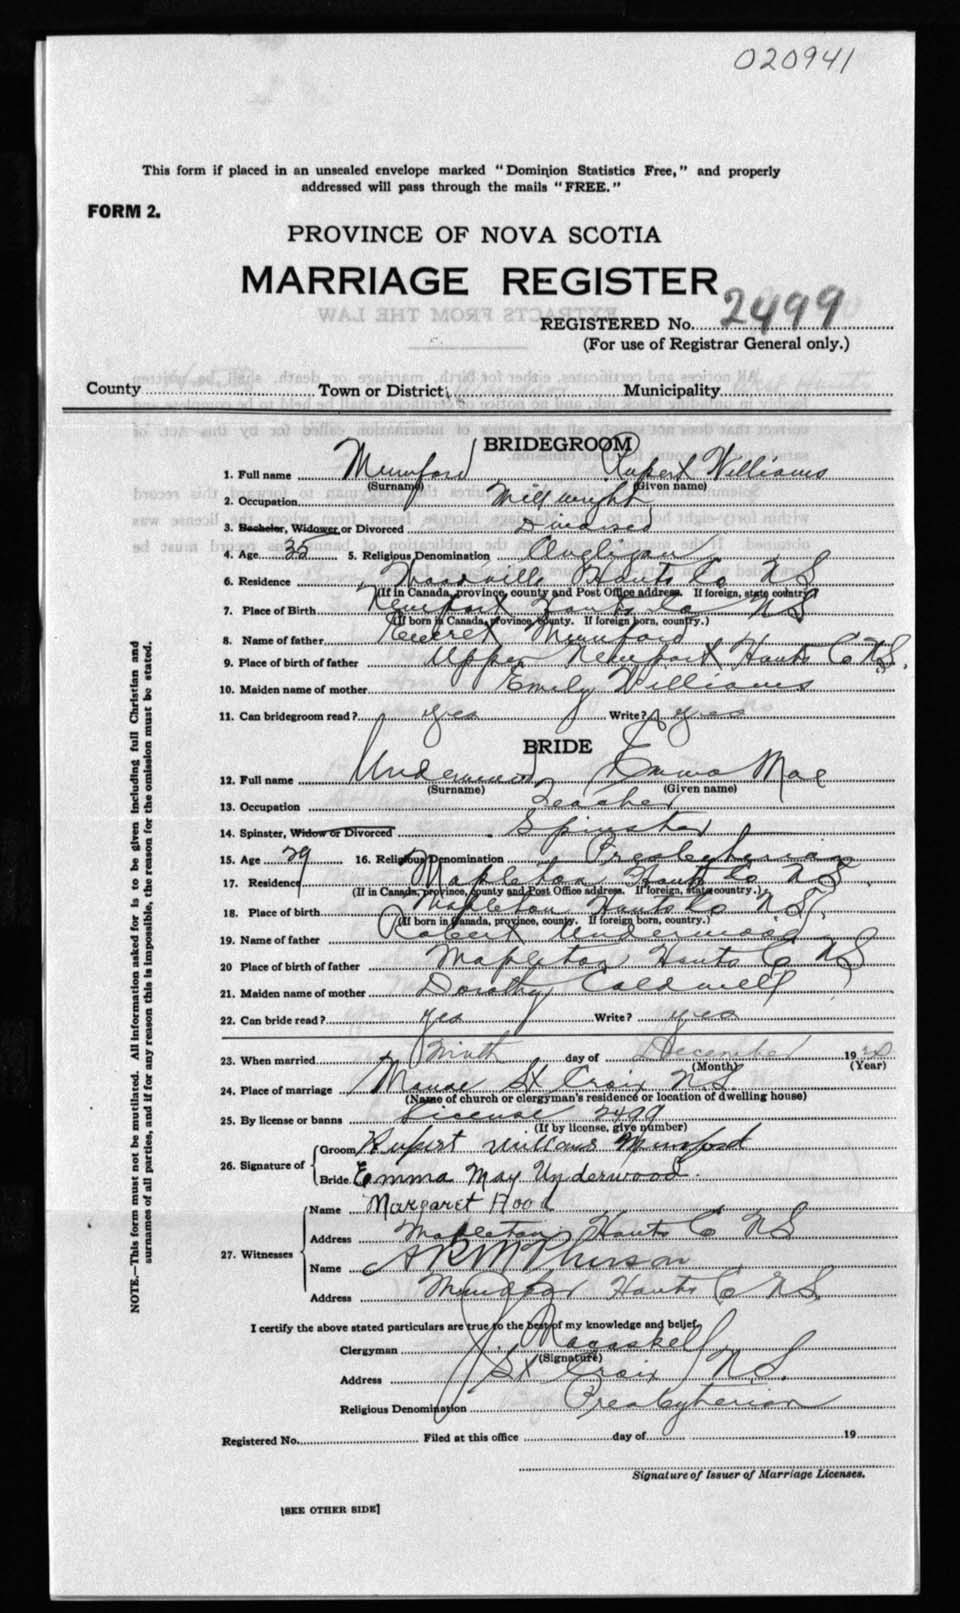 020941
This form if placed in an unsealed envelope marked "Dominion Statistics Free," and properly
addressed will pass through the mails "FREE."
FORM 2.
PROVINCE OF NOVA SCOTIA
MARRIAGE REGISTER
REGISTERED No. 2499
(For use of Registrar General only.)
County Town or District Municipality
BRIDEGROOM
1. Full name Mumford Rupert Williams
(Surname) (Given name)
2. Occupation Millwright
3. Bachelor, Widower or Divorced Divorced
4. Age 35 5. Religious Denomination Anglican
6. Residence Woodville Hants Co N S
(If in Canada, province, county and Post Office address. If foreign, state country)
7. Place of Birth Newport Hants Co N S
(If born in Canada, province, county. If foreign born, country.)
8. Name of father Mumford
9. Place of birth of father Upper Newport Hants Co N.S.
10. Maiden name of mother Emily Williams
11. Can bridegroom read? yes Write? yes
BRIDE
12. Full name Underwood Emma Mae
(Surname) (Given name)
13. Occupation Teacher
14. Spinster, Widow or Divorced Spinster
15. Age 29 16. Religious Denomination Presbyterian
17. Residence Mapleton Hants Co N.S.
(If in Canada, province, county and Post Office address. If foreign, state country.)
18. Place of birth Mapleton Hants Co N.S.
(If born in Canada, province, county. If foreign born, country.)
19. Name of father Robert Underwood
20 Place of birth of father Mapleton Hants Co N S
21. Maiden name of mother Dorothy Caldwell
22. Can bride read? yes Write? yes
23. When married Ninth day of December 19
(Month) (Year)
24. Place of marriage Manse St Croix N.S.
(Name of church or clergyman's residence or location of dwelling house)
25. By license or banns License 2499
(If by license, give number)
26. Signature of
Groom Rupert Williams Mumford
Bride Emma May Underwood.
27. Witnesses
Name Margaret Hood
Address Mapleton Hants Co N S
Name
Address Hants Co N.S.
I certify the above stated particulars are true to the best of my knowledge and belief.
Clergyman J. Macaskell
(Signature)
Address St Croix N.S.
Religious Denomination Presbyterian
Registered No. Filed at this office day of 19
Signature of Issuer of Marriage Licenses.
[SEE OTHER SIDE]
NOTE.—This form must not be mutilated. All information asked for is to be given including full Christian and
surnames of all parties, and if for any reason this is impossible, the reason for the omission must be stated.